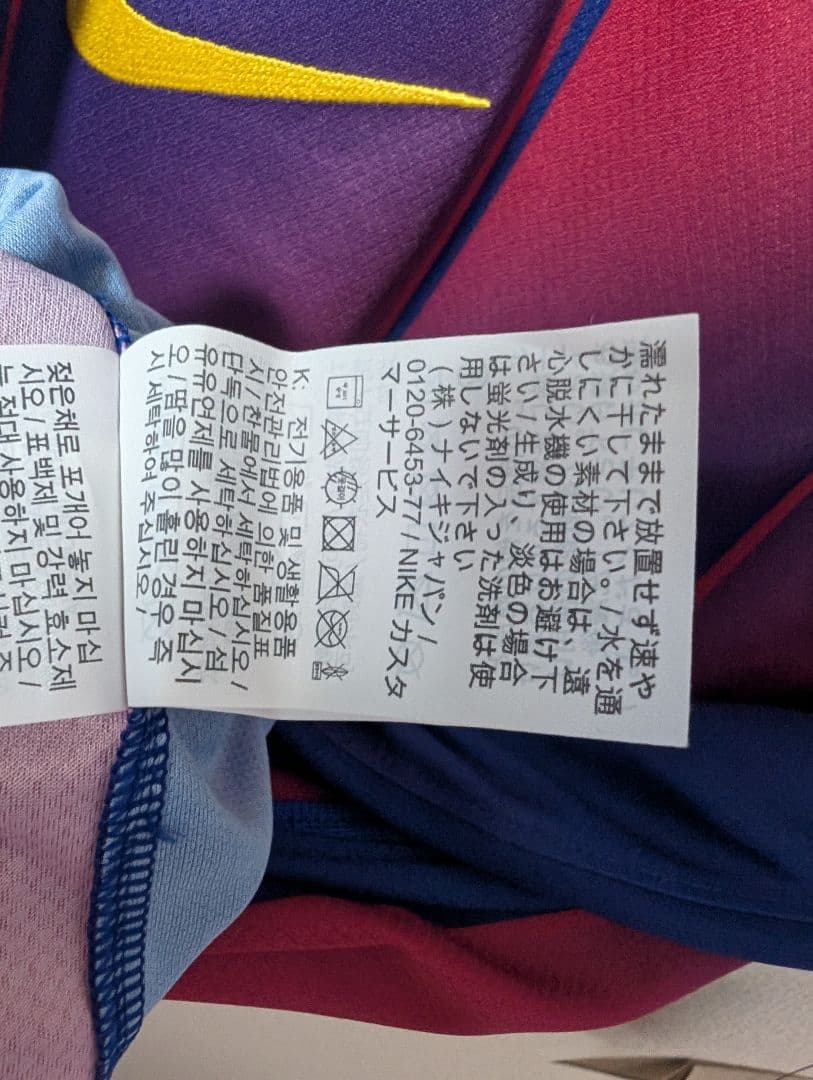 濡れたままで放置せず速や
かに干して下さい。/ 水を通
しにくい素材の場合は、遠
心脱水機の使用はお避け下
さい / 生成り、淡色の場合
は蛍光剤の入った洗剤は使
用しないで下さい
（株）ナイキジャパン /
0120-6453-77 / NIKE カスタ
マーサービス
K: 전기용품 및 생활용품
안전관리법에 의한 품질표
시 / 찬물에서 세탁하십시오 /
단독으로 세탁하십시오 / 섬
유유연제를 사용하지 마십시
오 / 땀을 많이 흘린 경우 즉
시 세탁하여 주십시오 /
젖은채로 포개어 놓지 마십
시오 / 표백제 및 강력 효소제
는 절대 사용하지 마십시오 /